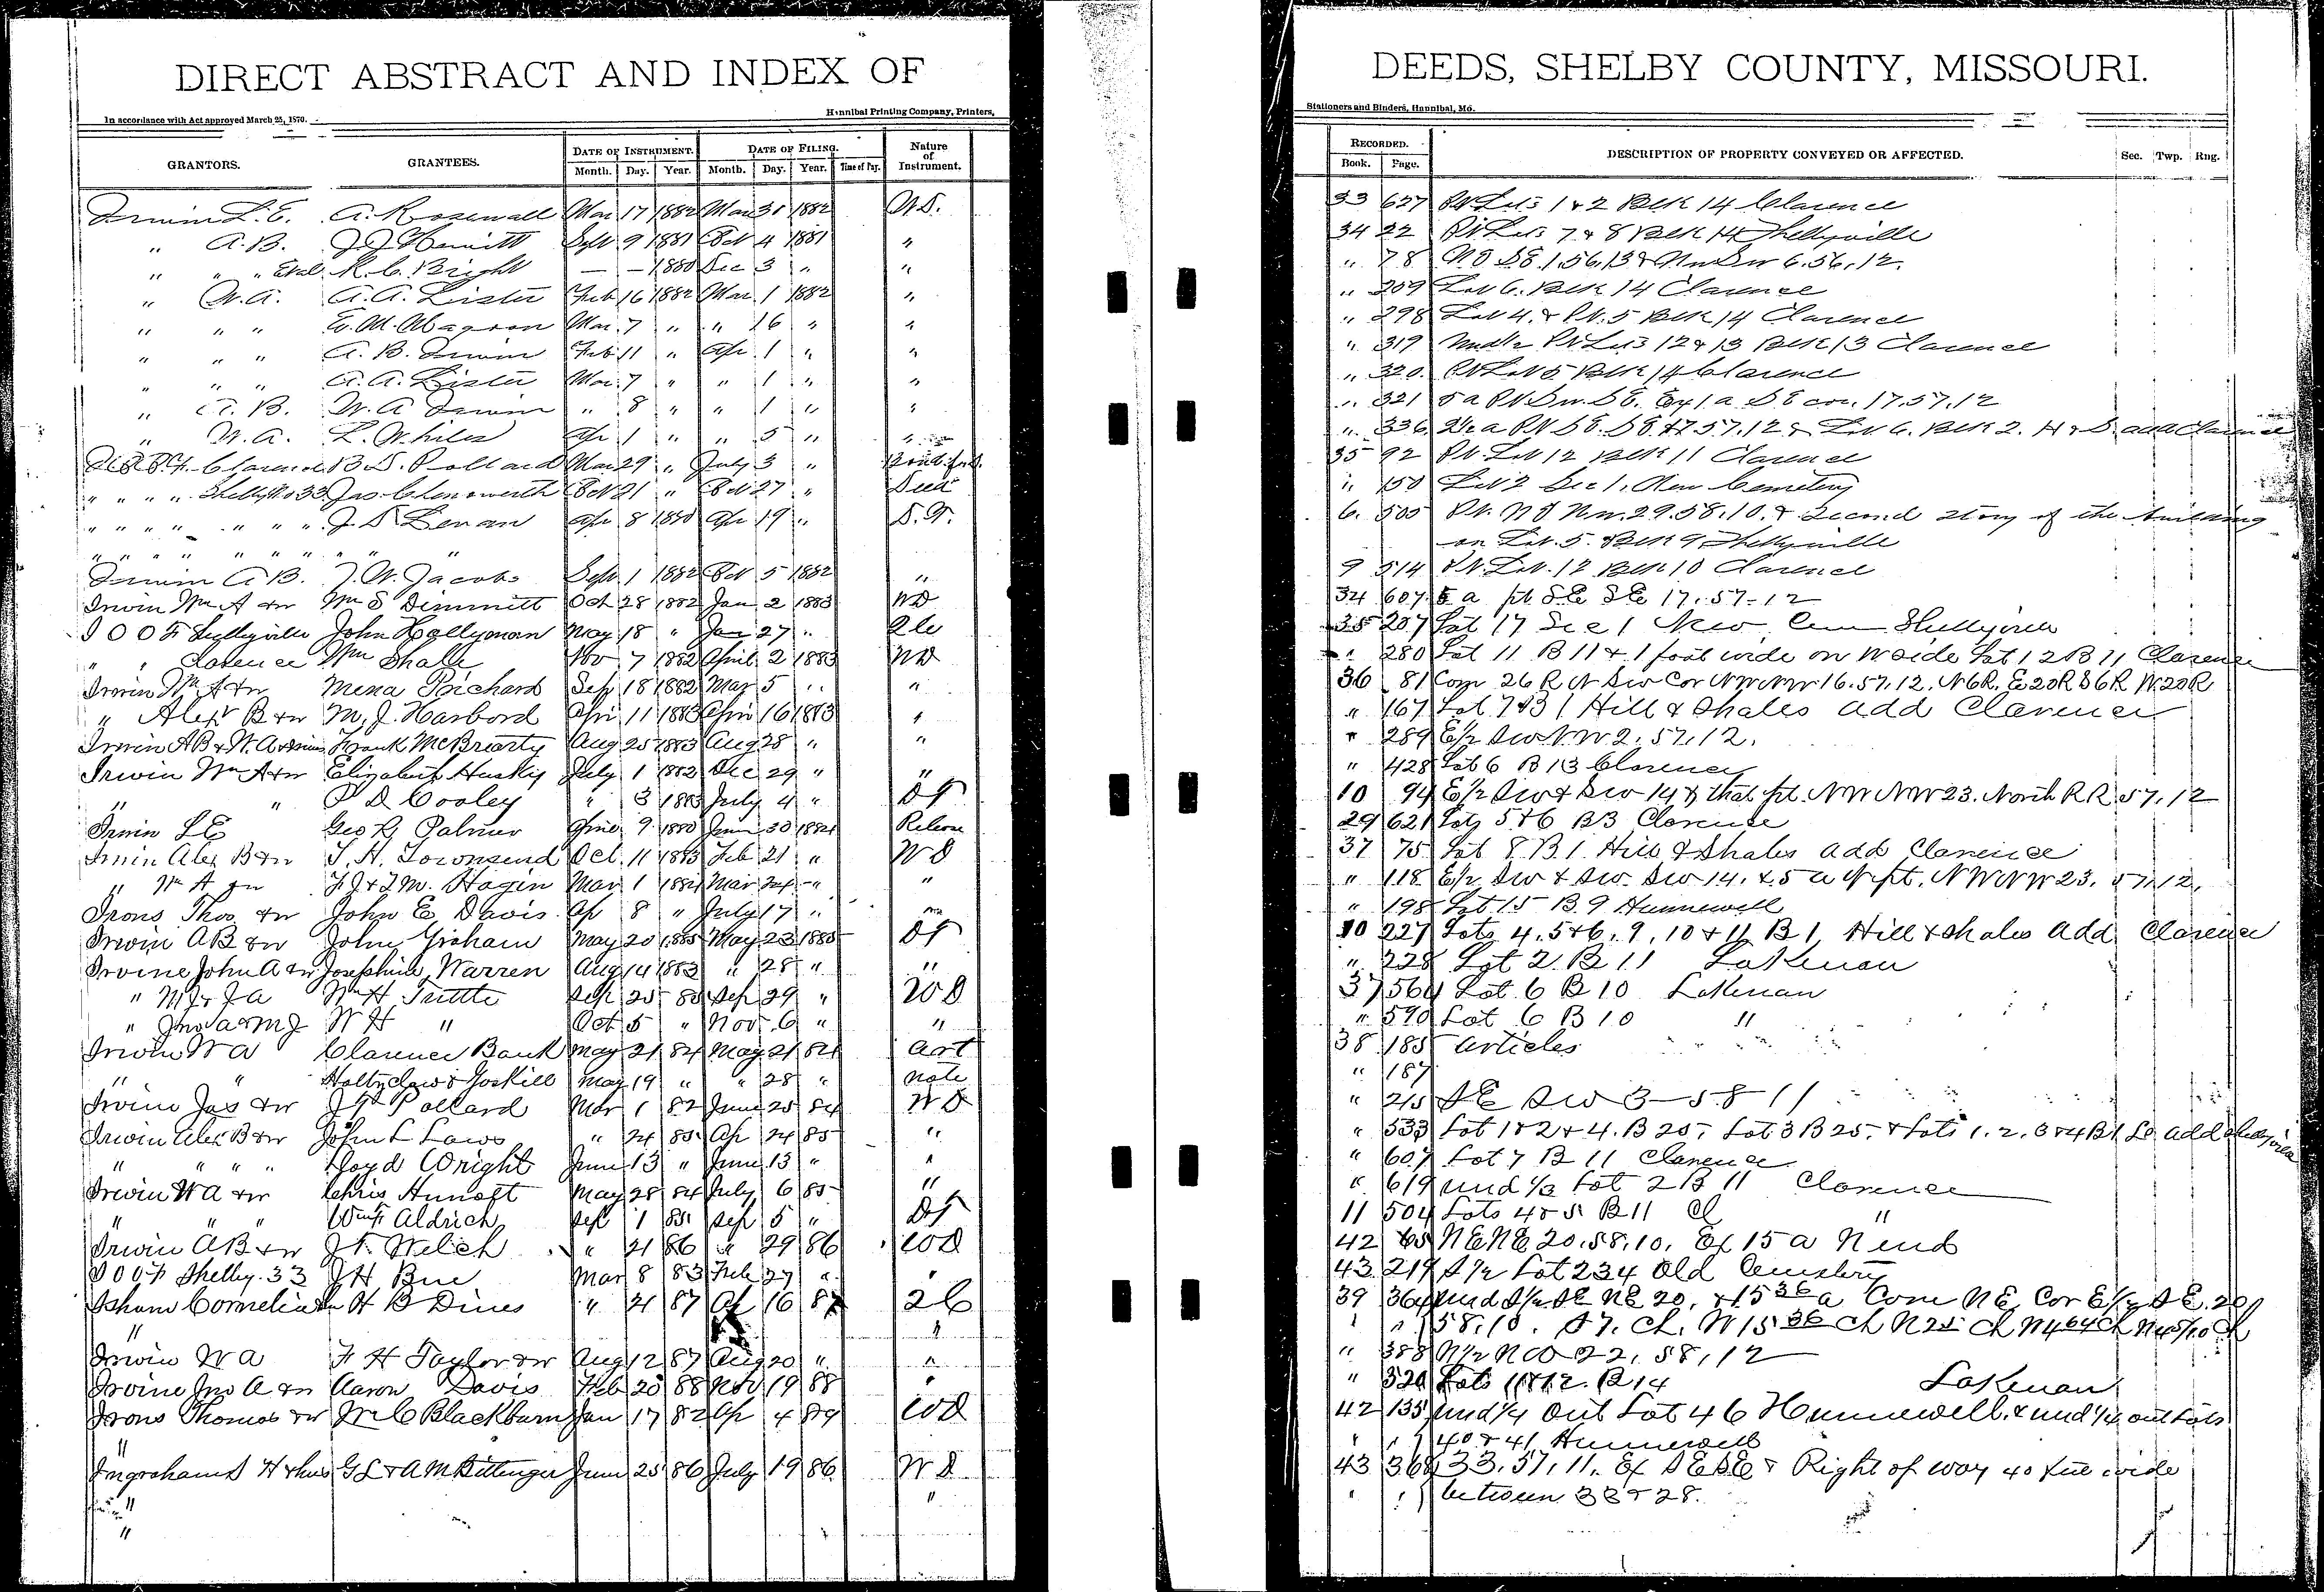 DIRECT ABSTRACT AND INDEX OF
Hannibal Printing Company, Printers,
In accordance with Act approved March 25, 1870.
GRANTORS. GRANTEES. DATE OF INSTRUMENT. DATE OF FILING. Nature of Instrument.
Month. Day. Year. Month. Day. Year. Time of Day.
Irwin L. E. A. Rosewall Mar 17 1882 Mar 31 1882 W.D.
" A. B. J. J. Hewitt Sept 9 1881 Oct 4 1881 "
" " " R. C. Bright — — 1880 Dec 3 " "
" W. A. A. A. Lister Feb 16 1882 Mar 1 1882 "
" " " Mar. 7 " " 16 " "
" " " A. B. Irwin Feb 11 " Apr 1 " "
" " " A. A. Lister Mar. 7 " " 1 " "
" A. B. W. A Irwin " 8 " " 1 " "
" W. A. L. Whiles Apr 1 " " 5 " "
I.O.O.F. Clarence B. D. Pollard Mar 29 " July 3 "
" " " " Shelby No 33 Jas Chenoweth Oct 21 " Oct 27 " Deed
" " " " " " " J. S. Apr 8 1880 Apr 19 " D.T.
" " " " " " " " "
Irwin A B. J. W. Jacobs Sept 1 1882 Oct 5 1882 "
Irwin Wm A & w Wm S Dimmitt Oct 28 1882 Jan 2 1883 WD
I O O F Shelbyville John Hollyman May 18 " Jan 27 "
" " Clarence Wm Shale Nov 7 1882 April 2 1883 WD
Irwin Wm A & w Mena Prichard Sep 18 1882 Mar 5 " "
" Alex B & w M. J. Harbord Apri 11 1883 Apri 16 1883 "
Irwin AB & W. A Frank McBriarty Aug 25 1883 Aug 28 " "
Irwin Wm A & w Elizabeth Husky July 1 1882 Dec 29 " "
" " P D Cooley " 3 1883 July 4 " DT
Irwin L E Geo R Palmer 9 1880 June 30 1884 Release
Irwin Alex B & w T. H. Townsend Oct. 11 1883 Feb 21 " WD
" Wm A & w F J & I M. Hagin Mar 1 1884 Mar 24 " "
Irons Thos & w John E Davis Ap 8 " July 17 " "
Irwin AB & w John Graham May 20 1885 May 23 1885 DT
Irvine John A & w Josephine Warren Aug 14 1883 " 28 " "
" M J & J A Wm H Tuttle Sep 25 85 Sep 29 " WD
" Jno A & M J W H " Oct 5 " Nov. 6 " "
Irwin W A Clarence Bank May 21 84 May 21 84 Art
" " Holtzclaw & Goskill May 19 " " 28 " note
Irvine Jas & w Pollard Mar 1 82 June 25 84 WD
Irwin Alex B & w John L Laws " 24 85 Ap 24 85 "
" " " " Floyd Wright June 13 " June 13 " "
Irwin W A & w Chris Hunolt May 28 84 July 6 85 "
" " " Wm F Aldrich Sep 1 85 Sep 5 " DT
Irwin AB & w J F. Welch " 21 86 " 29 86 WD
I O O F Shelby. 33 J H Bue Mar 8 83 Feb 27 " "
Isham Cornelia H B Dines " 21 87 Ap 16 87
" "
Irwin W A F H Taylor & w Aug 12 87 Aug 20 " "
Irvine Jno A & w Aaron Davis Feb 25 88 Nov 19 88 "
Irons Thomas & w Wm C Blackburn Jan 17 82 Ap 4 89 WD
"
Ingraham H & hus G L & A M Bittinger June 25 86 July 19 86 WD
" "
"
DEEDS, SHELBY COUNTY, MISSOURI.
Stationers and Binders, Hannibal, Mo.
RECORDED. DESCRIPTION OF PROPERTY CONVEYED OR AFFECTED. Sec. Twp. Rng.
Book. Page.
33 627 Pt Lots 1 & 2 Blk 14 Clarence
34 22 Pt Lots 7 & 8 Blk 14 Shelbyville
" 78 1.56.13 & 6.56.12.
" 209 Lot 6. Blk 14 Clarence
" 298 Lot 4. & Pt. 5 Blk 14 Clarence
" 319 Und 1/2 Pt Lots 12 & 13 Blk 13 Clarence
" 320. Pt Lot 5 Blk 14 Clarence
" 321 5 a Pt Sw. SE. Ex 1 a SE cor. 17.57.12
" 336 a Pt SE. SE 17.57.12 & Lot 6. Blk 2. H & S. add Clarence
35 92 Pt. Lot 12 Blk 11 Clarence
" 150 Lot 2 Sec 1. New Cemetery
6. 505 Pt. Nw. 29.58.10. & Second story of the building
on Lot. 5. Blk 9 Shelbyville
9 514 Pt. Lot. 12 Blk 10 Clarence
34 607 5 a pt SE SE 17.57-12
35 207 Lot 17 Sec 1 New Cem Shelbyville
" 280 Lot 11 B 11 & 1 foot wide on W side Lot 12 B 11 Clarence
36 81 Com 26 R N Sw Cor NWNW 16.57.12. N6R. E20R S6R W.20R
" 167 Lot 7 B 1 Hill & Shales add Clarence
" 289 E1/2 SW NW 2. 57.12.
" 428 Lot 6 B 13 Clarence
10 94 E1/2 SW & SW 14 & that pt. NW NW 23. North RR 57.12
29 621 Lots 5 & 6 B3 Clarence
37 75 Lot 8 B 1. Hill & Shales add Clarence
" 118 E1/2 SW & SW. SW 14. & 5 a N pt. NWNW 23. 57.12.
" 198 Lot 15 B. 9 Hunnewell
10 227 Lots 4. 5 & 6. 9. 10 & 11 B 1 Hill & Shales Add Clarence
" 228 Lot 2 B 11 Lakenan
37 564 Lot 6 B 10 Lakenan
" 590 Lot 6 B 10 "
38 185 Articles
" 187
" 215 SE SW 3-58 11
" 533 Lot 1 & 2 & 4. B 25, Lot 3 B 25. & Lots 1. 2. 3 & 4 B 1 So add Shelbyville
" 607 Lot 7 B 11 Clarence
" 619 und 1/3 Lot 2 B 11 Clarence
11 504 Lots 4 & 5 B 11 Cl "
42 65 NENE 20.58.10. Ex 15 a N end
43 219 S1/2 Lot 234 Old Cemetery
39 364 und SE NE 20. & 15 36 a Com NE Cor E1/2 SE 20
" " 58.10. S 7. Ch. W 15 36 Ch N 25 Ch
" 388 N1/2 22. 58. 12
" 320 Lots 11 & 12. B 14 Lakenan
42 135 und 1/4 Out Lot 46 Hunnewell. & und 1/4 out Lots
" " 40 & 41 Hunnewell
43 368 33. 57. 11. Ex SE SE & Right of way 40 feet wide
" " between 33 & 28.